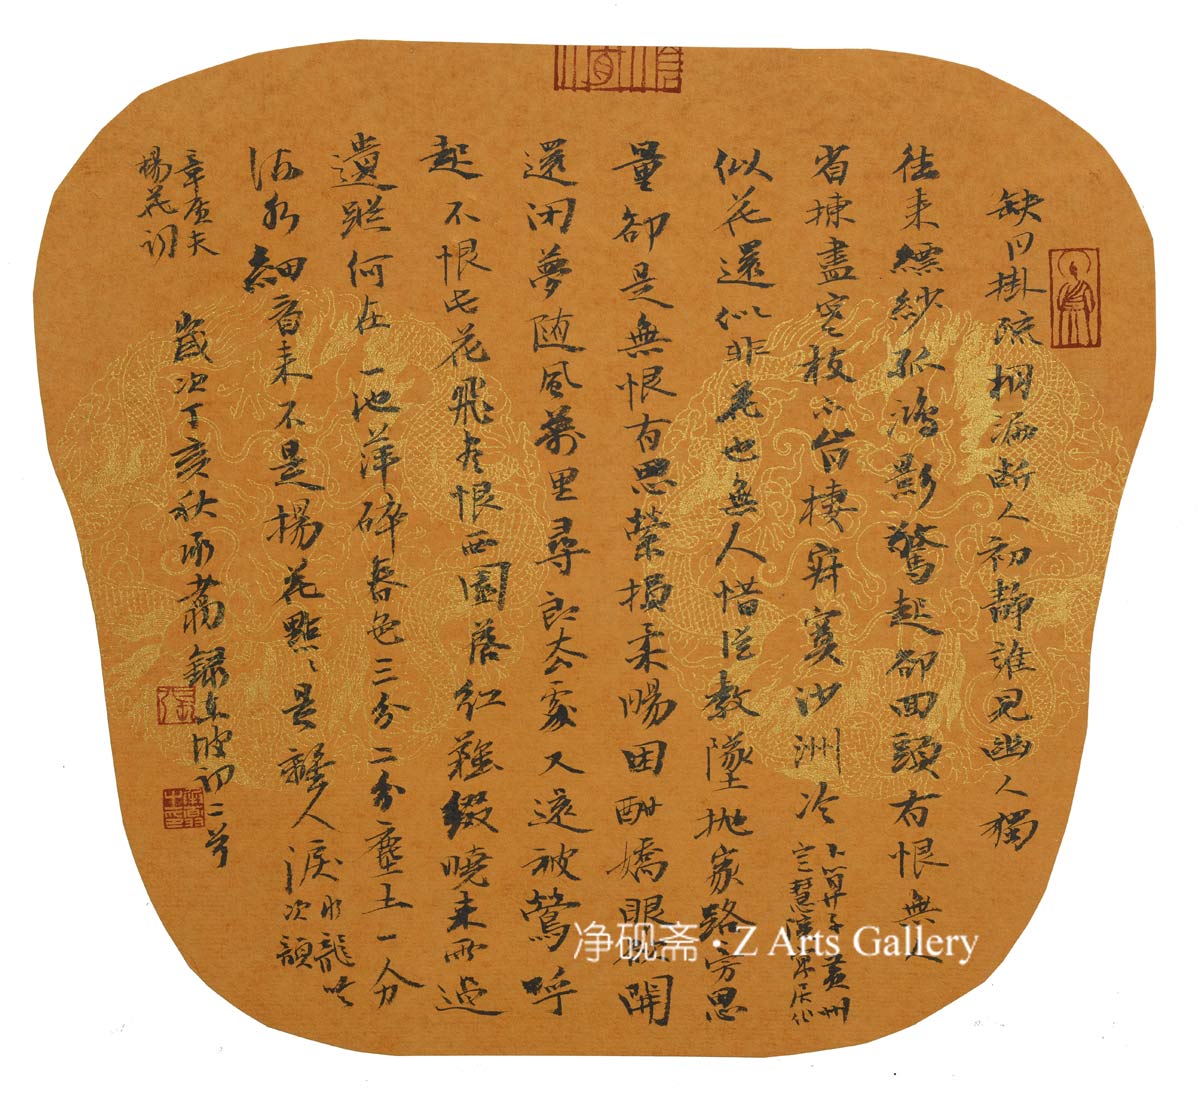 缺月掛疏桐漏断人初靜誰見幽人獨
往来縹緲孤鴻影驚起卻回頭有恨無人
省揀盡寒枝不肯棲寂寞沙洲冷
卜算子黃州
定慧院寓居作
似花還似非花也無人惜從教墜拋家路旁思
量卻是無恨有思縈損柔腸困酣嬌眼欲開
還閉夢随風萬里尋郎去處又還被鶯呼
起不恨此花飛盡恨西園落紅難綴曉来雨過
遺蹤何在一池萍碎春色三分二分塵土一分
流水細看来不是楊花點〻是離人淚
水龍吟
次韻
章质夫
楊花詞
歲次丁亥秋承翥錄東坡詞二首
净砚斋 · Z Arts Gallery